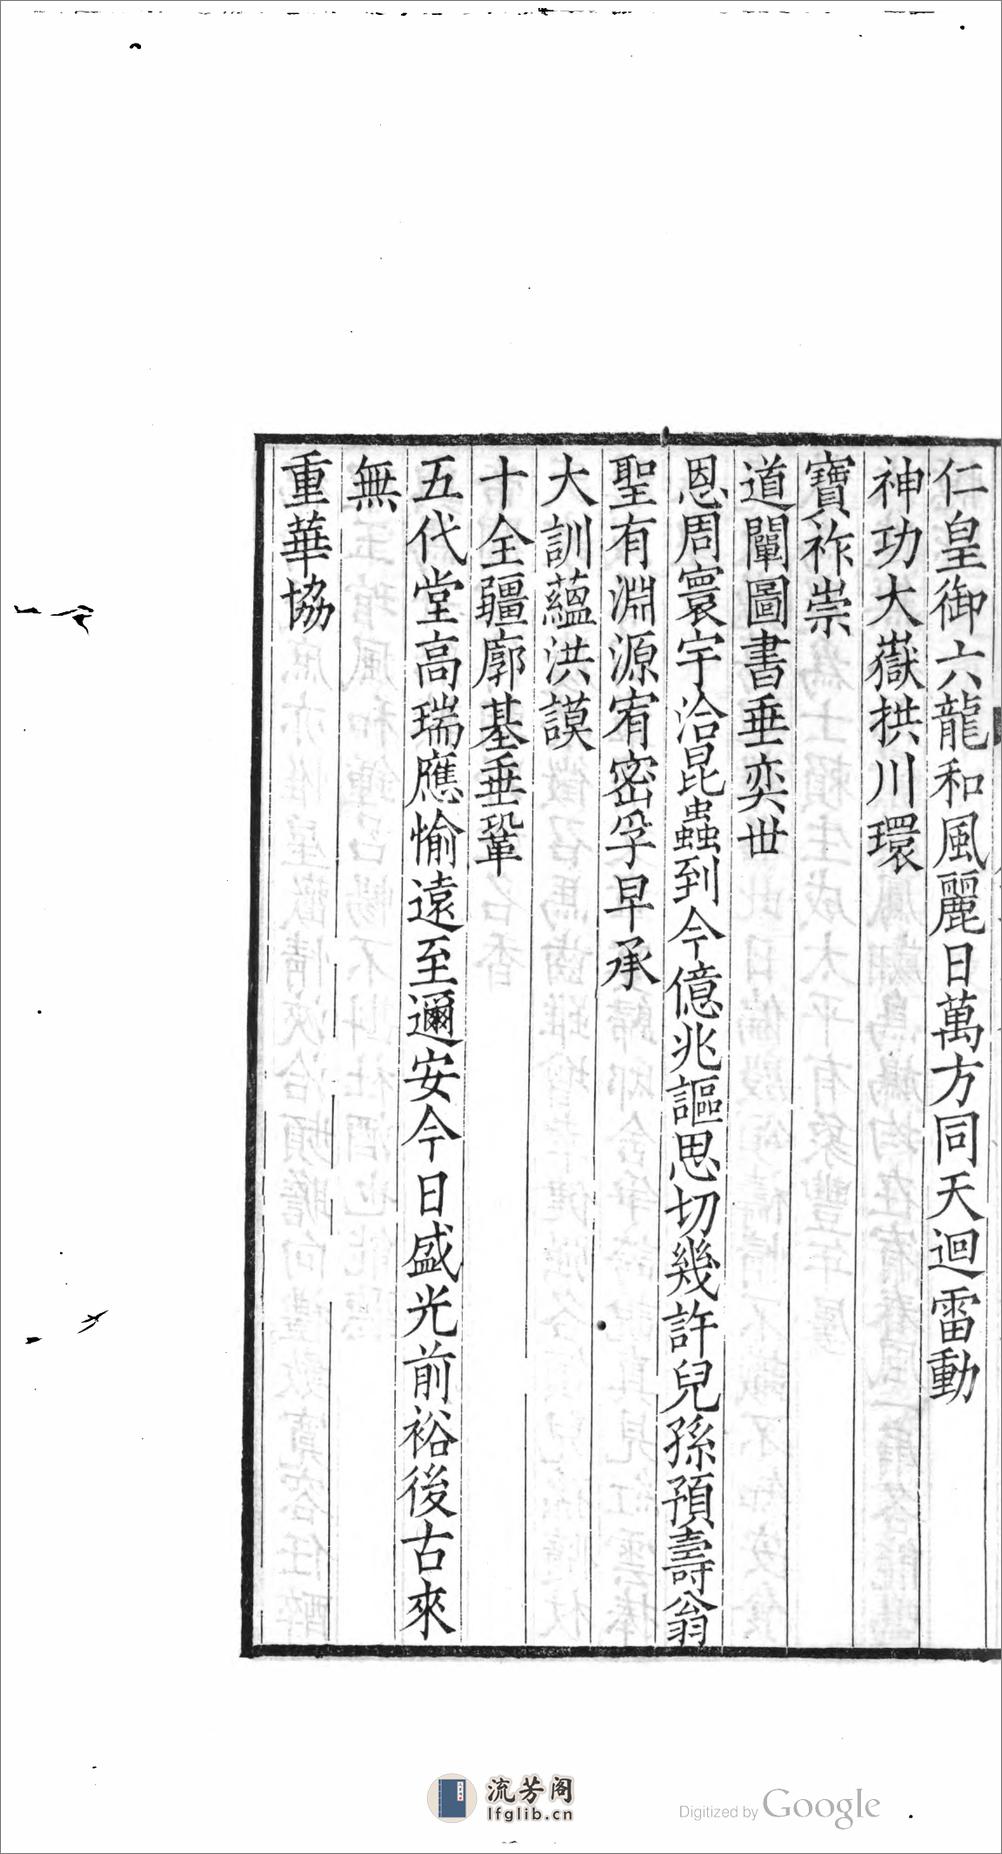 仁皇御六龍和風麗日萬方同天迴雷動
神功大嶽拱川環
寶祚崇
道闡圖書垂奕世
恩周寰宇洽昆蟲到今億兆謳思切幾許兒孫預壽翁
聖有淵源宥密孚早承
大訓蘊洪謨
十全疆廓基垂鞏
五代堂高瑞應愉遠至邇安今日盛光前裕後古來
無
重華協
流芳阁
lfglib.cn
Digitized by Google